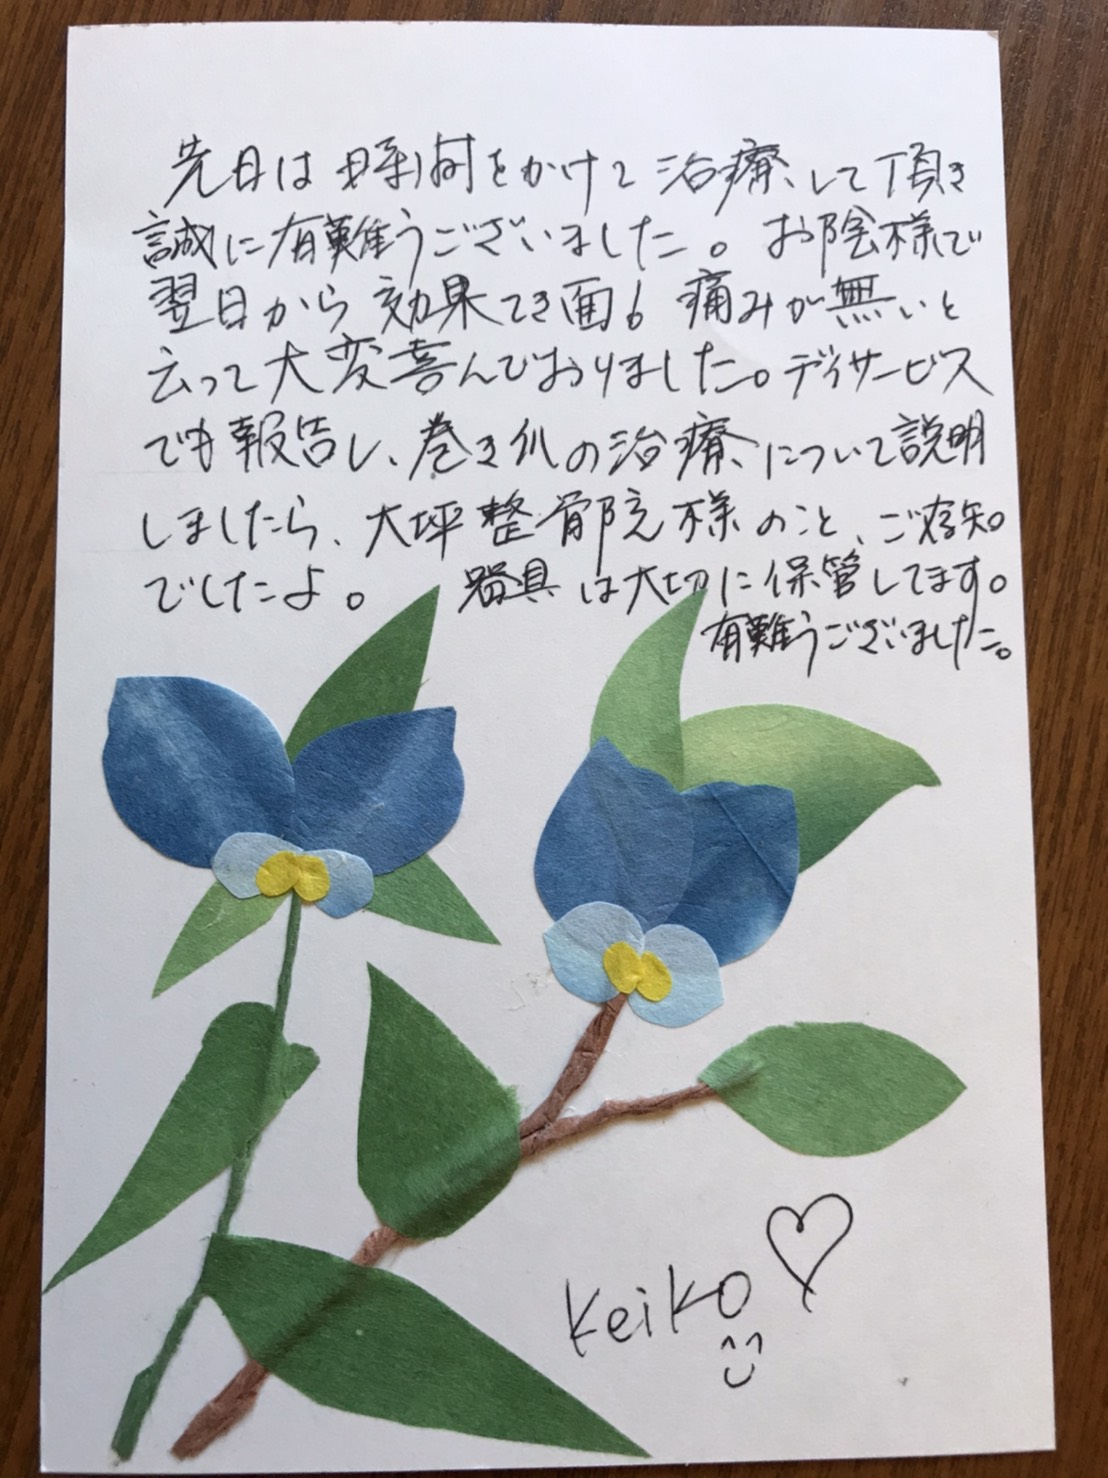 先日は時間をかけて治療して頂き
誠に有難うございました。お陰様で
翌日から効果てき面!痛みが無いと
云って大変喜んでおりました。デイサービス
でも報告し、巻き爪の治療について説明
しましたら、大坪整骨院様のこと、ご存知
でしたよ。器具は大切に保管してます。
有難うございました。
Keiko